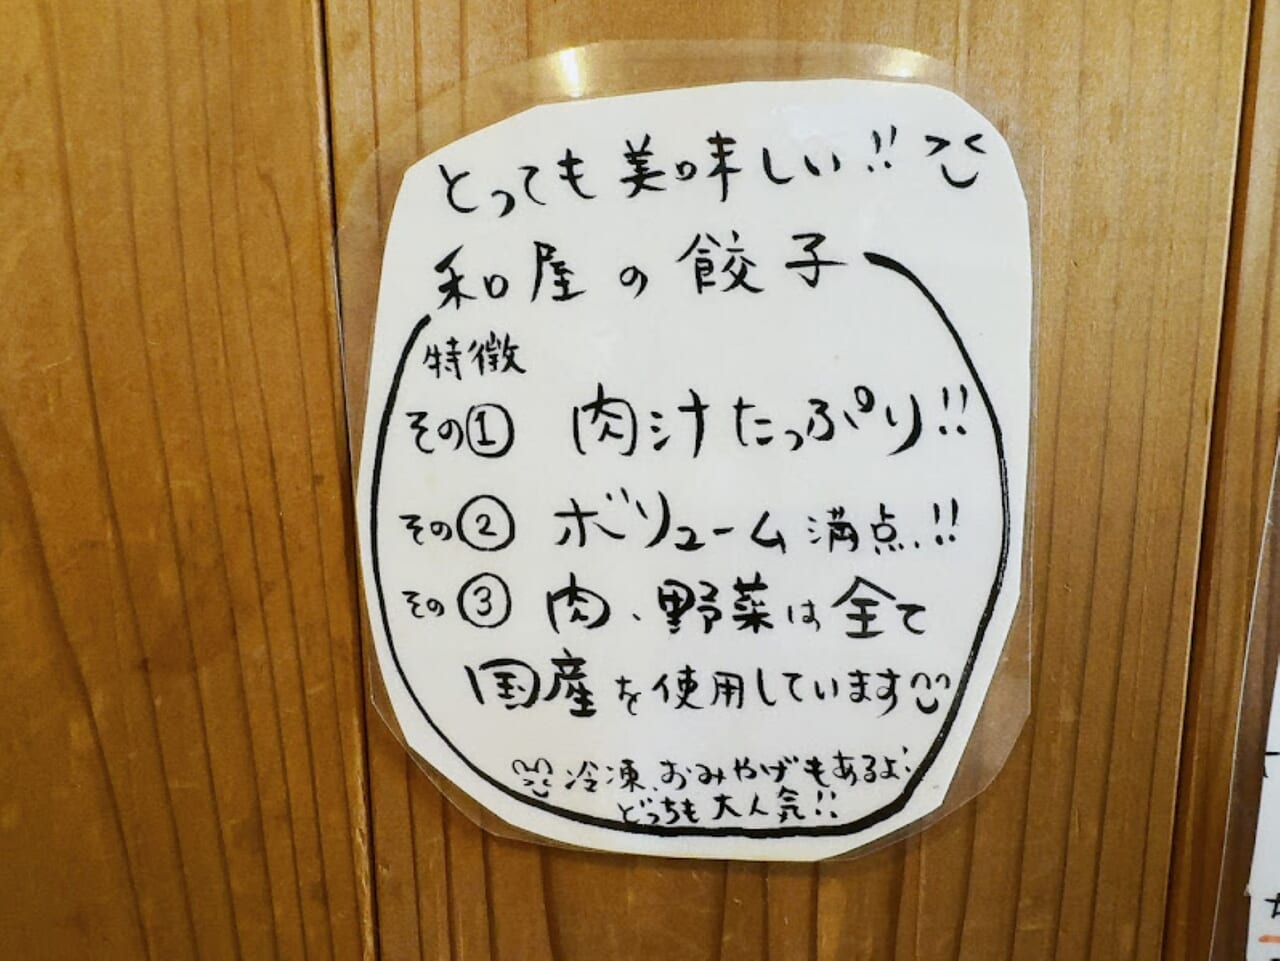 とっても美味しい!!
和屋の餃子
特徴
その① 肉汁たっぷり!!
その② ボリューム満点!!
その③ 肉、野菜は全て
国産を使用しています
冷凍、おみやげもあるよ!
どっちも大人気!!